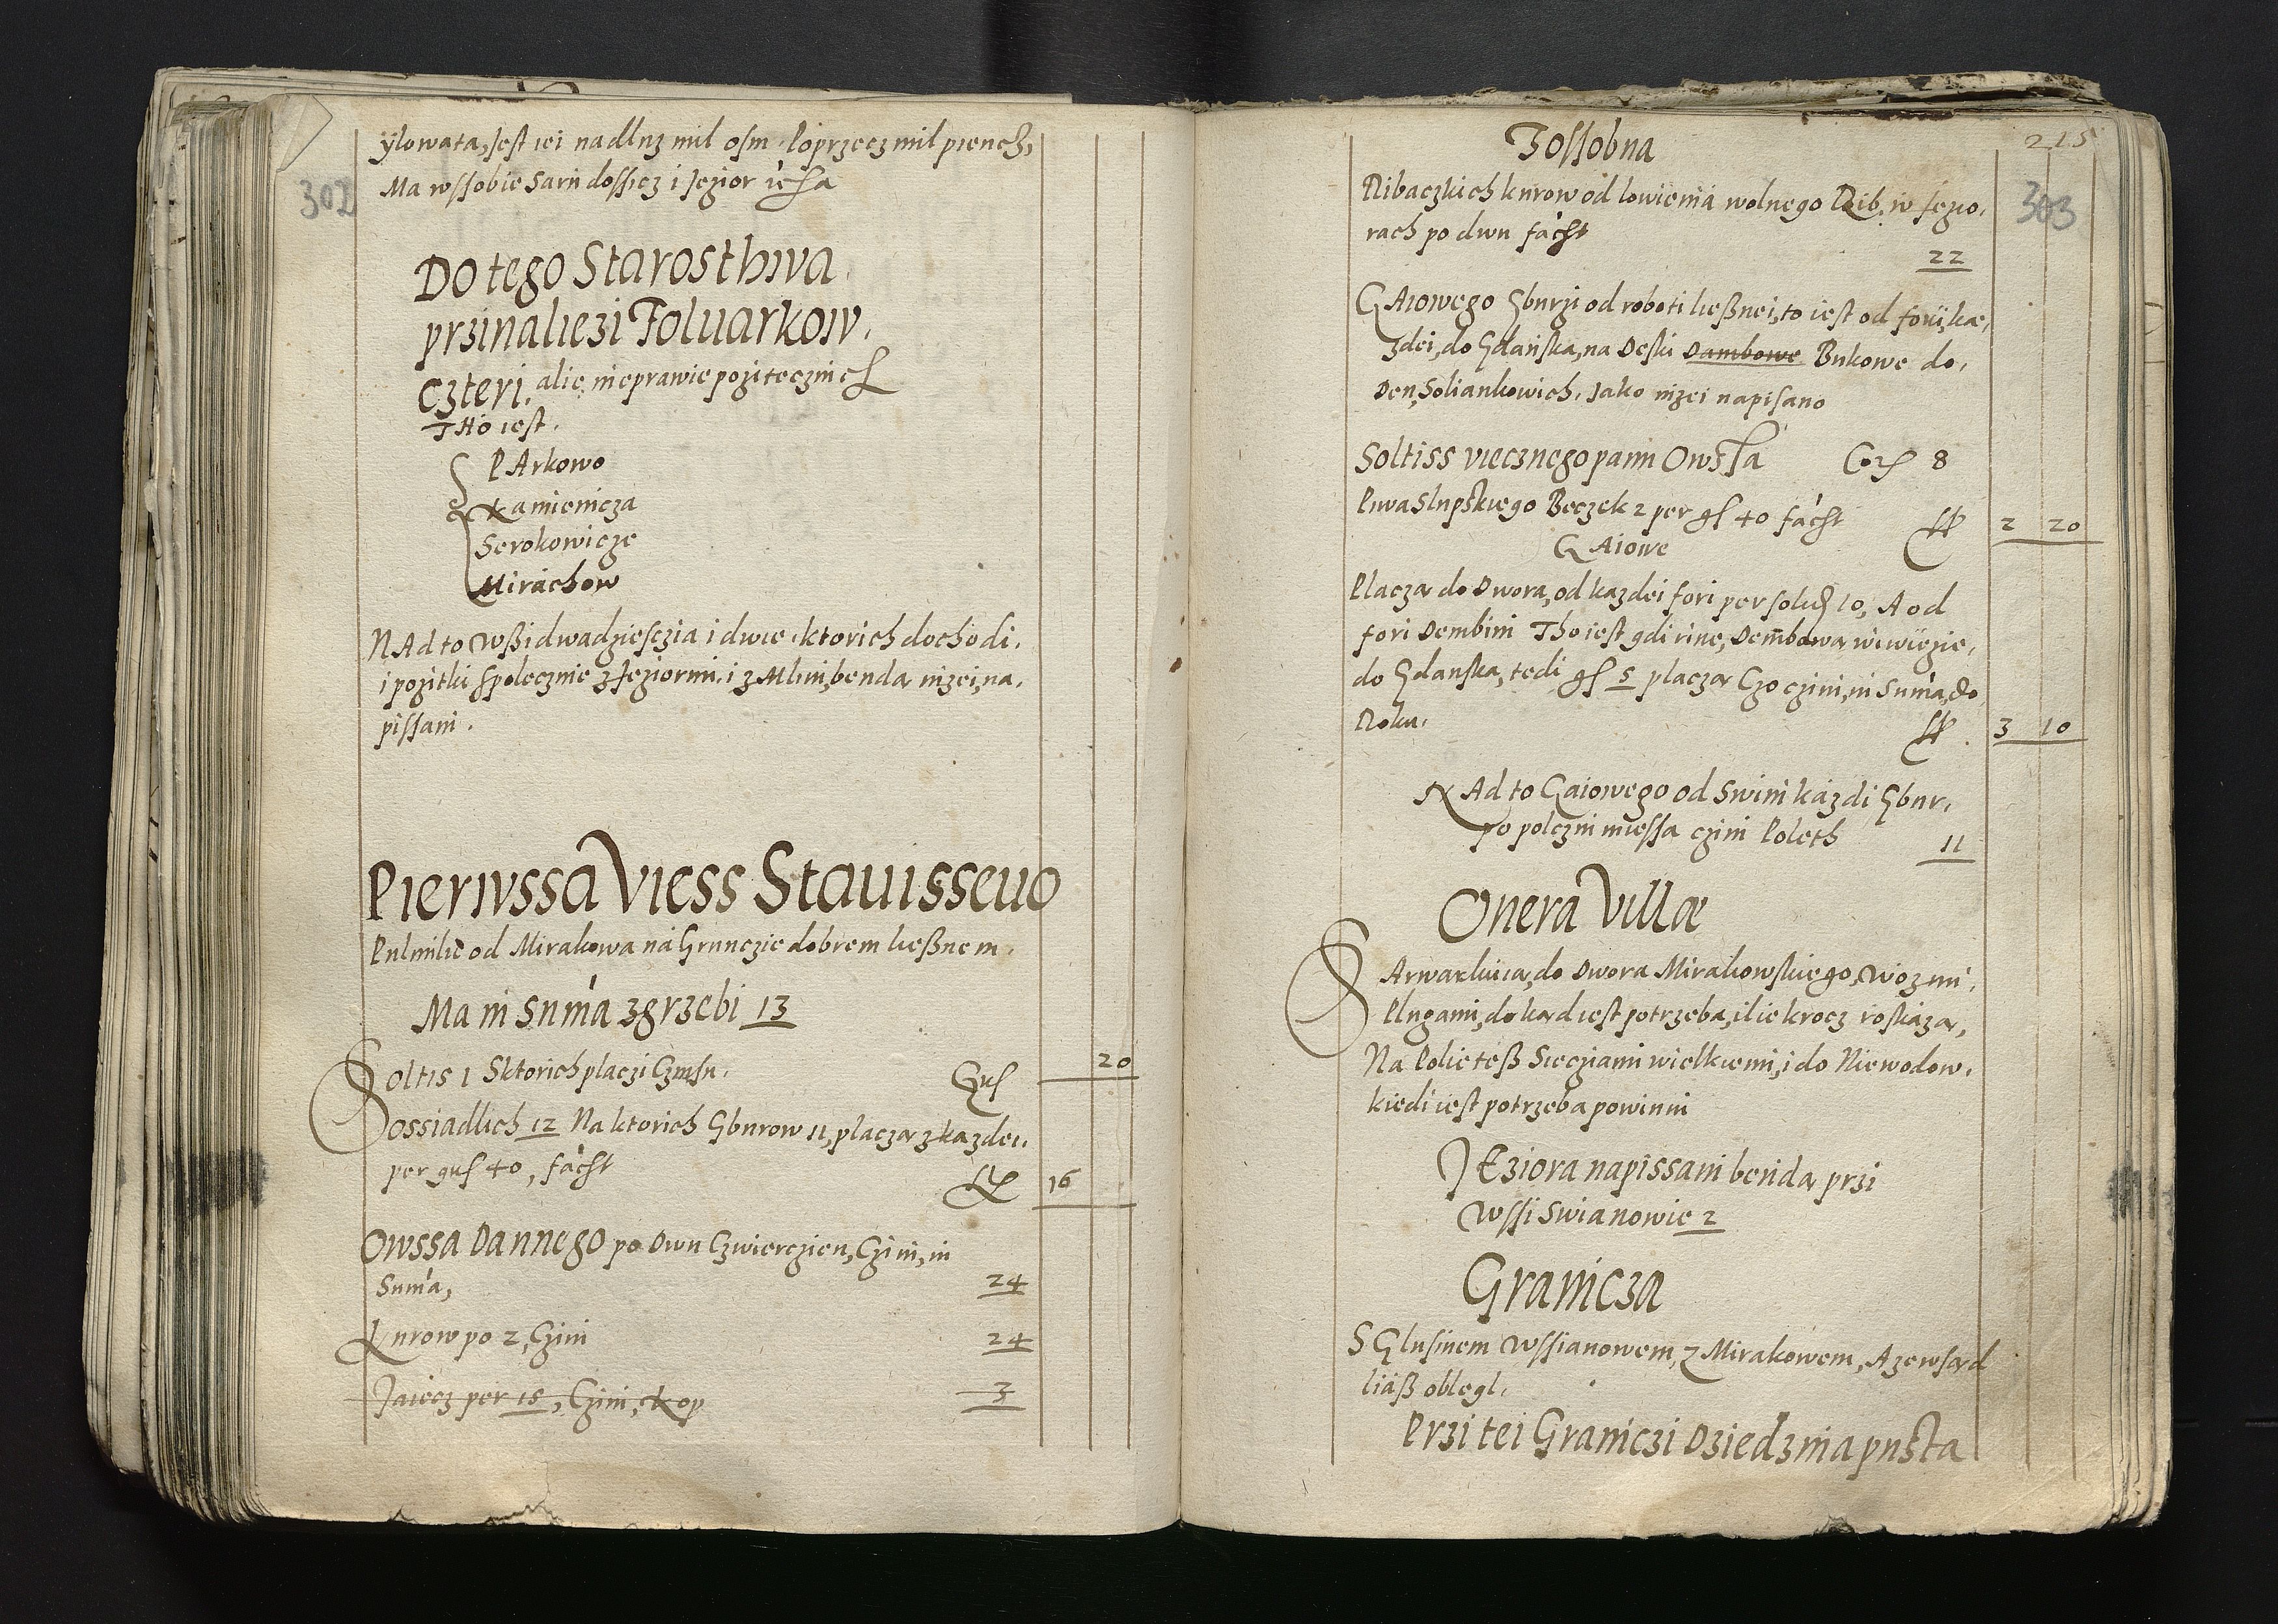 ÿlowata, Jest iei nadluz mil osm Poprzecz mil piench,
Ma wssobie Sarn dossicz i Jezior
302
Do tego Starosthwa
przinaliezi Foluarkow.
czteri, alie nieprawie poziteczmich
THo iest.
PArkowo
Kamienicza
Serokowicze
Mirachow
NAd to Wßi dwadziesczia i dwie, ktorich dochodi,
i pozitki spolecznie z Jeziormi, i z Mlini, benda nizei, na,
pissani.
Pierwssa Viess Stauisseuo
Pulmilie od Mirakowa na Grunczie dobrem ließnem.
Ma in Suma zgrzebi 13
Soltis 1 Sktorich placzi Czinsu. Gus 20
Dossiadlich 12 Na ktorich Gburow 11, placza z kazdei,
per gus 40, facit 16
Owssa Dannego po Dwu Czwierczien, Czini, in
Suma, 24
Kurow po 2, Czini 24
Jaiecz per 15, Czini, kop 3
215
303
Fossobna
Ribaczkich kurow od lowienia wolnego Rib, w Jezio,
rach po dwu facit
22
GAiowego Gburzi od roboti ließnei, to iest od fori, ka,
zdei, do Gdanska, na Deski Dambowe Bukowe do,
Den, Soliankowich, Jako nizei napisano
Soltiss viecznego panu Owssa Cor 8
Piwa Slupskiego Beczek 2 per gs 40 facit 2 20
GAiowe
Placza do Dwora, od kazdei fori per solid 10, A od
fori Dembini Tho iest gdi rine, Dembowa wiwiezie,
do Gdanska, tedi gs 5 placza Czo czini, in Suma, do
Roku, 3 10
NAd to Gaiowego od Swini kazdi Gbur,
po polczin miessa czini Poleth 11
Onera Villæ
SArwarkuia, do Dwora Mirakowskiego, Wozmi,
Plugami, do kad iest potrzeba, ilie krocz roskaza,
Na Polie teß Siecziami wielkiemi, i do Niewodow,
kiedi iest potrzeba powinni
JEziora napissani benda przi
Wssi Swianowie 2
Granicza
S Glusinem Wssianowem, z Mirakowem, A zewsad
liaß oblegl,
Przi tei Graniczi Dziedzina pusta